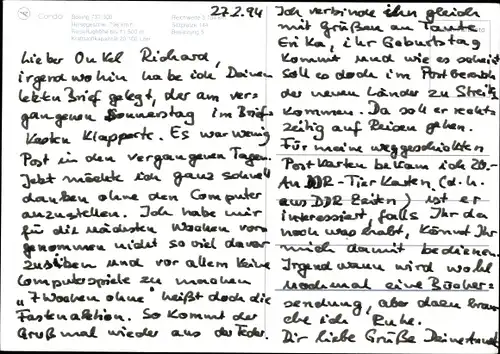 Condor
Boeing 737-300
27.2.94
Lieber Onkel Richard,
irgendwohin habe ich Deinen
letzten Brief gelegt, der am ver-
gangenen Donnerstag im Brief-
kasten klapperte. Es war wenig
Post in den vergangenen Tagen.
Jetzt möchte ich ganz schnell
danken ohne den Computer
anzustellen. Ich habe mir
für die nächsten Wochen vor-
genommen nicht so viel davor
zu sitzen und vor allem keine
Computerspiele zu machen
"7 Wochen ohne" heißt doch die
Fastenaktion. So kommt der
Gruß mal wieder aus der Feder.
Ich verbinde ihn gleich
mit Grüßen an Tante
Erika, ihr Geburtstag
kommt und wie es scheint
soll es doch im Postbereich
der neuen Länder zu Streik
kommen. Da soll er recht-
zeitig auf Reisen gehen.
Für meine weggeschickten
Postkarten bekam ich 20.-
An DDR-Tierkarten (d.h.
aus DDR Zeiten) ist er
interessiert, falls Ihr da
noch was habt, könnt Ihr
mich damit bedienen.
Irgendwann wird wohl
nochmal eine Bücher-
sendung, aber dazu brau-
che ich Ruhe.
Dir liebe Grüße Deine